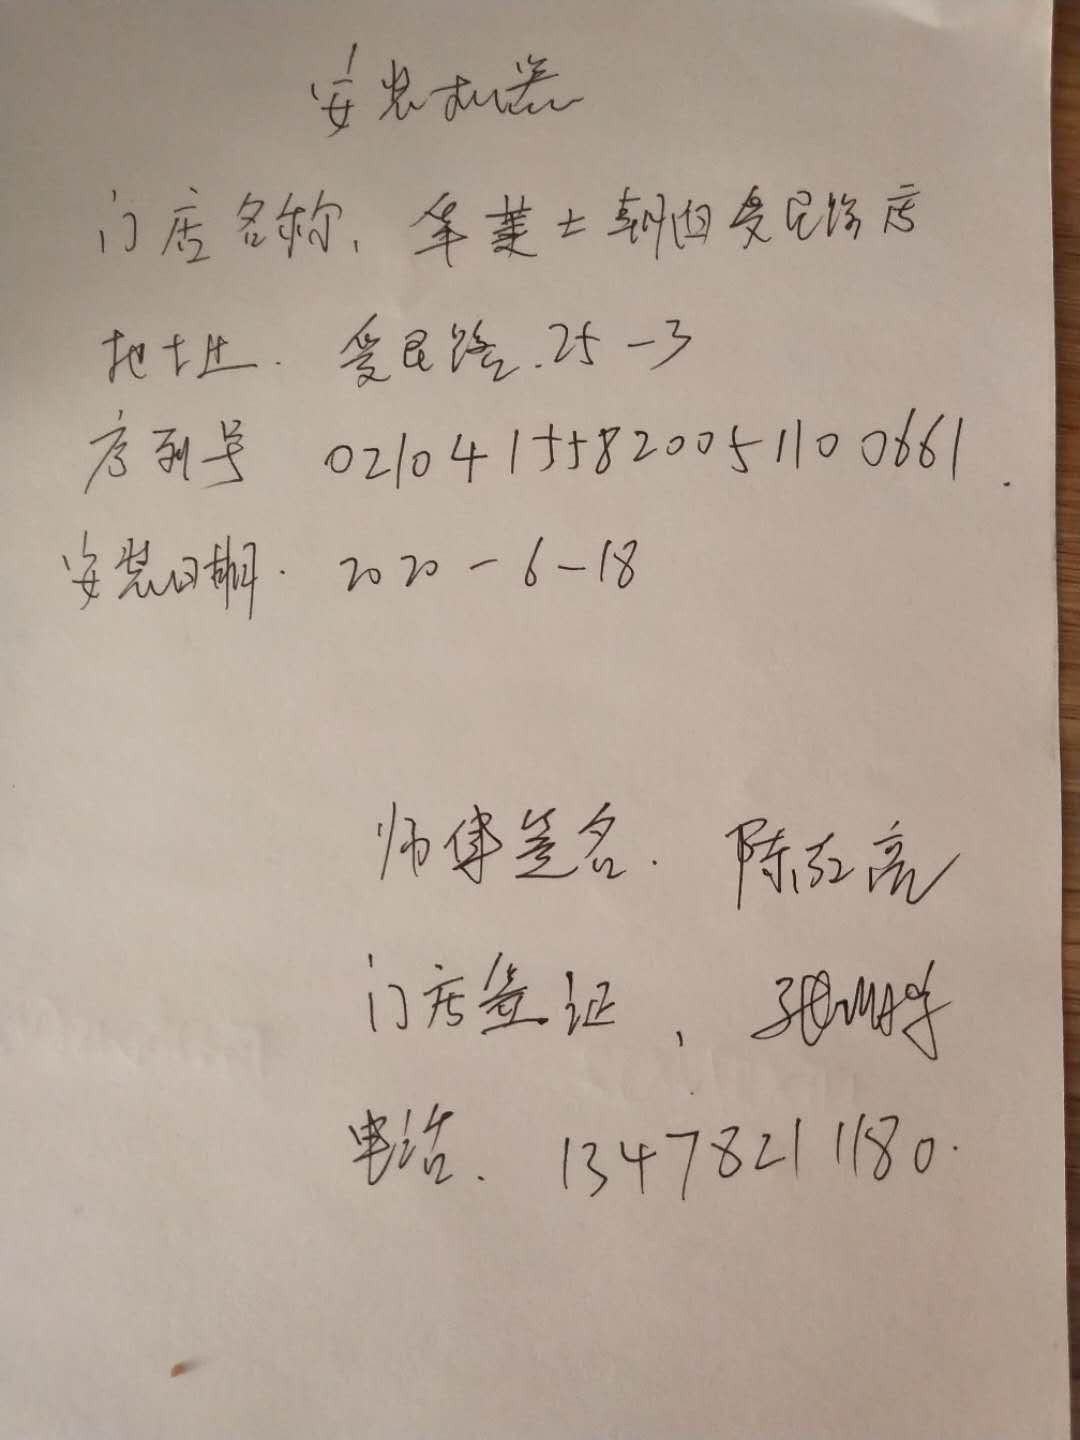 安装机器
门店名称、华莱士朝阳爱民路店
地址. 爱民路.25-3
序列号 02104155820051100661.
安装日期. 2020-6-18
师傅签名. 陈红亮
门店签证、
电话. 13478211180.